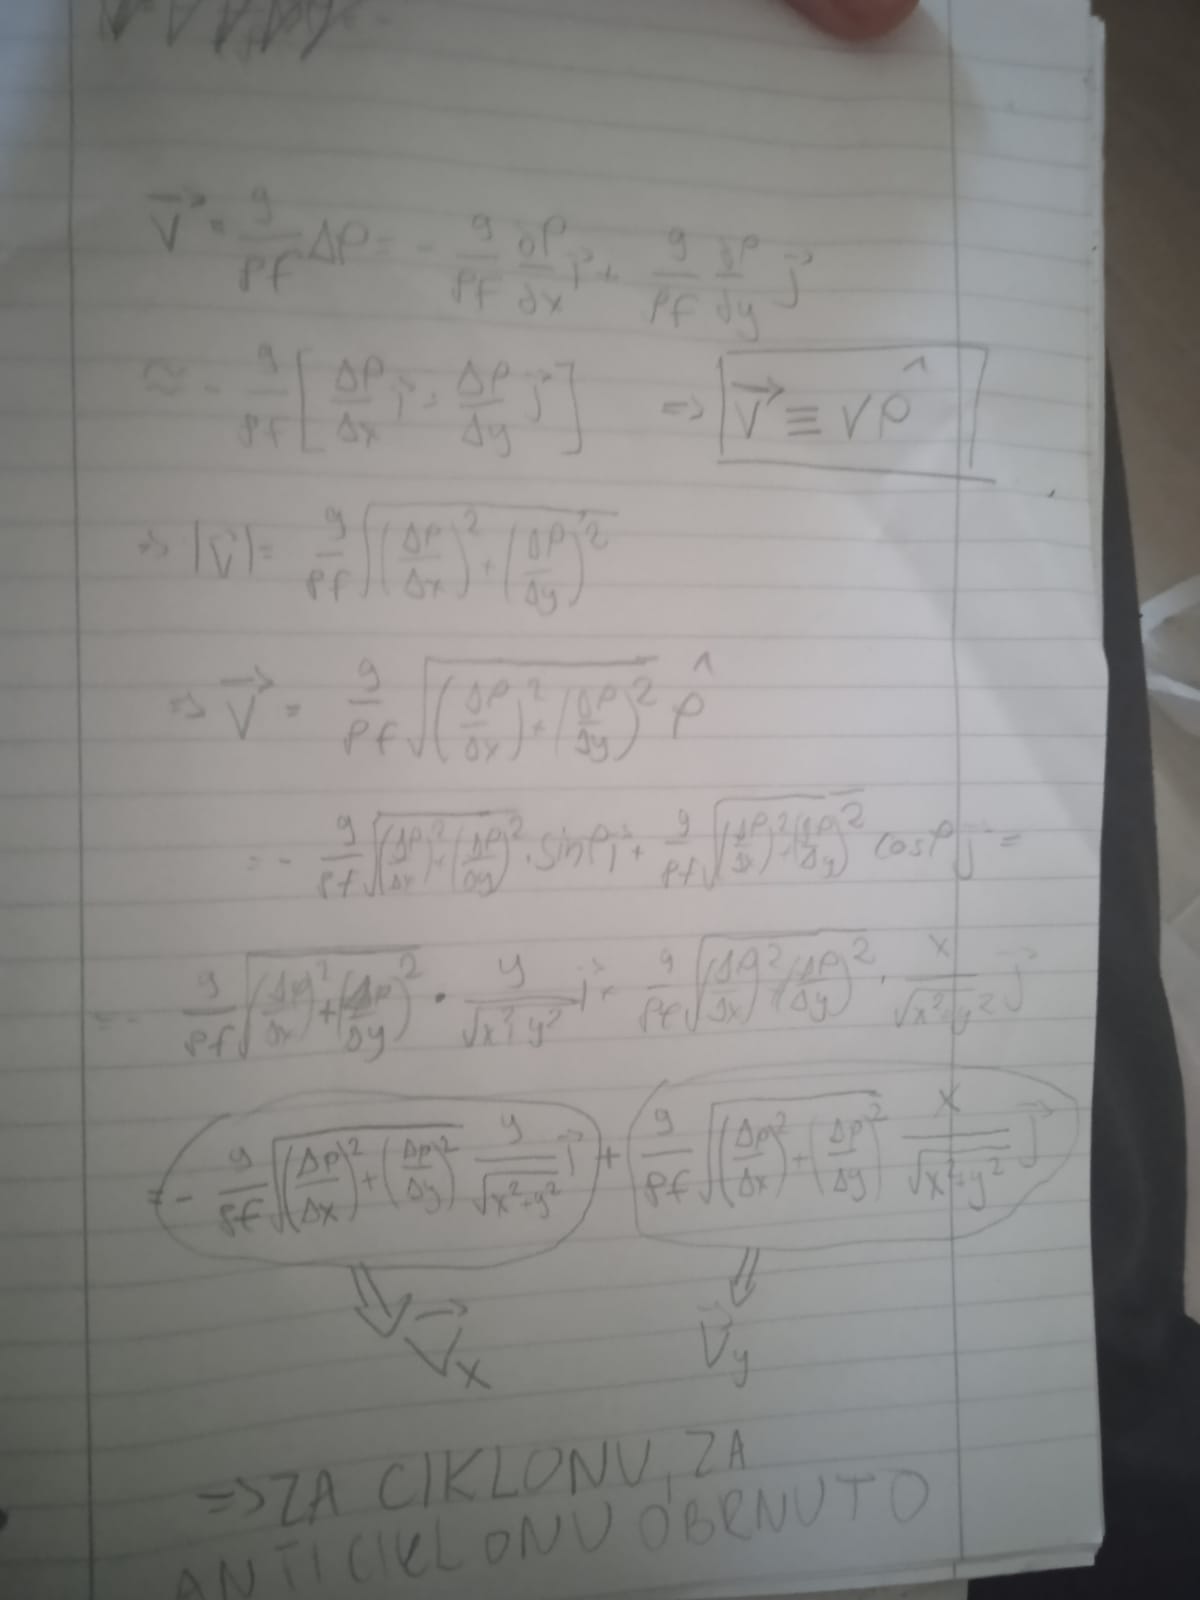 V⃗ = g/ρf Δp = - g/ρf ∂p/∂x i⃗ + g/ρf ∂p/∂y j⃗
≈ - g/ρf [ Δp/Δx i⃗ + Δp/Δy j⃗ ] => V⃗ ≡ V φ̂
=> |V⃗| = g/ρf √((Δp/Δx)² + (Δp/Δy)²)
=> V⃗ = g/ρf √((Δp/Δx)² + (Δp/Δy)²) φ̂
= - g/ρf √((Δp/Δx)² + (Δp/Δy)²) · sinφ i⃗ + g/ρf √((Δp/Δx)² + (Δp/Δy)²) cosφ j⃗ =
= - g/ρf √((Δp/Δx)² + (Δp/Δy)²) · y/√(x²+y²) i⃗ + g/ρf √((Δp/Δx)² + (Δp/Δy)²) · x/√(x²+y²) j⃗
= - g/ρf √((Δp/Δx)² + (Δp/Δy)²) y/√(x²+y²) i⃗ + g/ρf √((Δp/Δx)² + (Δp/Δy)²) x/√(x²+y²) j⃗
V⃗x V⃗y
=> ZA CIKLONU, ZA
ANTICIKLONU OBRNUTO